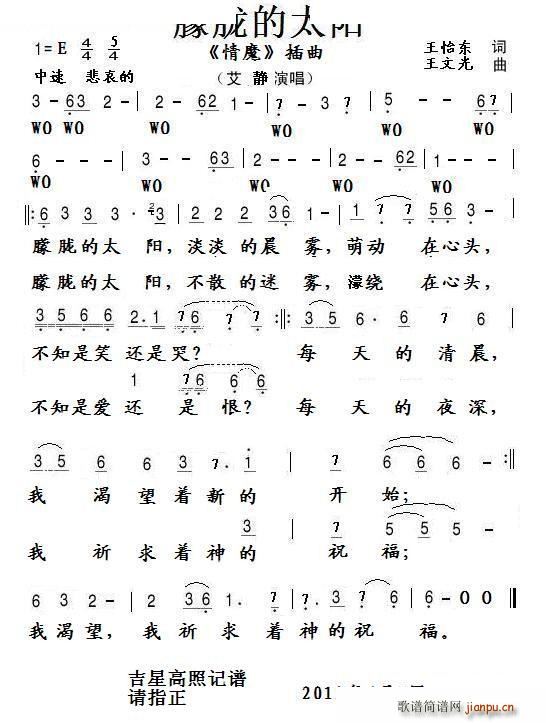 朦胧的太阳
1=E 4/4 5/4 《情魔》插曲 王怡东 词
王文光 曲
中速 悲哀的 (艾 静 演唱)
3 - 63 2 - - 2 - 62 1 - - 7 - 7 5 - - 6 - 67
WO WO WO WO WO WO
6 - - - 3 - - 63 2 - - 2 - - 62 1 - -
WO WO WO WO
‖: 6 3 3 3· 2 3 5 2 2 2 36 1 - 1 7 7 56 6 3 -
朦 胧 的 太 阳, 淡 淡 的 晨 雾, 萌 动 在 心 头,
朦 胧 的 太 阳, 不 散 的 迷 雾, 濛 绕 在 心 头,
3 5 6 6 2· 1 76 7 7 :‖: 3 5 6· 6 7 6
不 知 是 笑 还 是 哭? 每 天 的 清 晨,
1 76 6 6
不 知 是 爱 还 是 恨? 每 天 的 夜 深,
3 5 6 6 3· 2 1 7 6 6 6 - :‖
我 渴 望 着 新 的 开 始;
3 7 5 5 5
我 祈 求 着 神 的 祝 福;
6 3 2 - 2 36 1· 7 7 3 5 7 7 6 - 0 0
我 渴 望, 我 祈 求 着 神 的 祝 福。
吉星高照记谱
请指正 201
歌谱简谱网
jianpu.cn